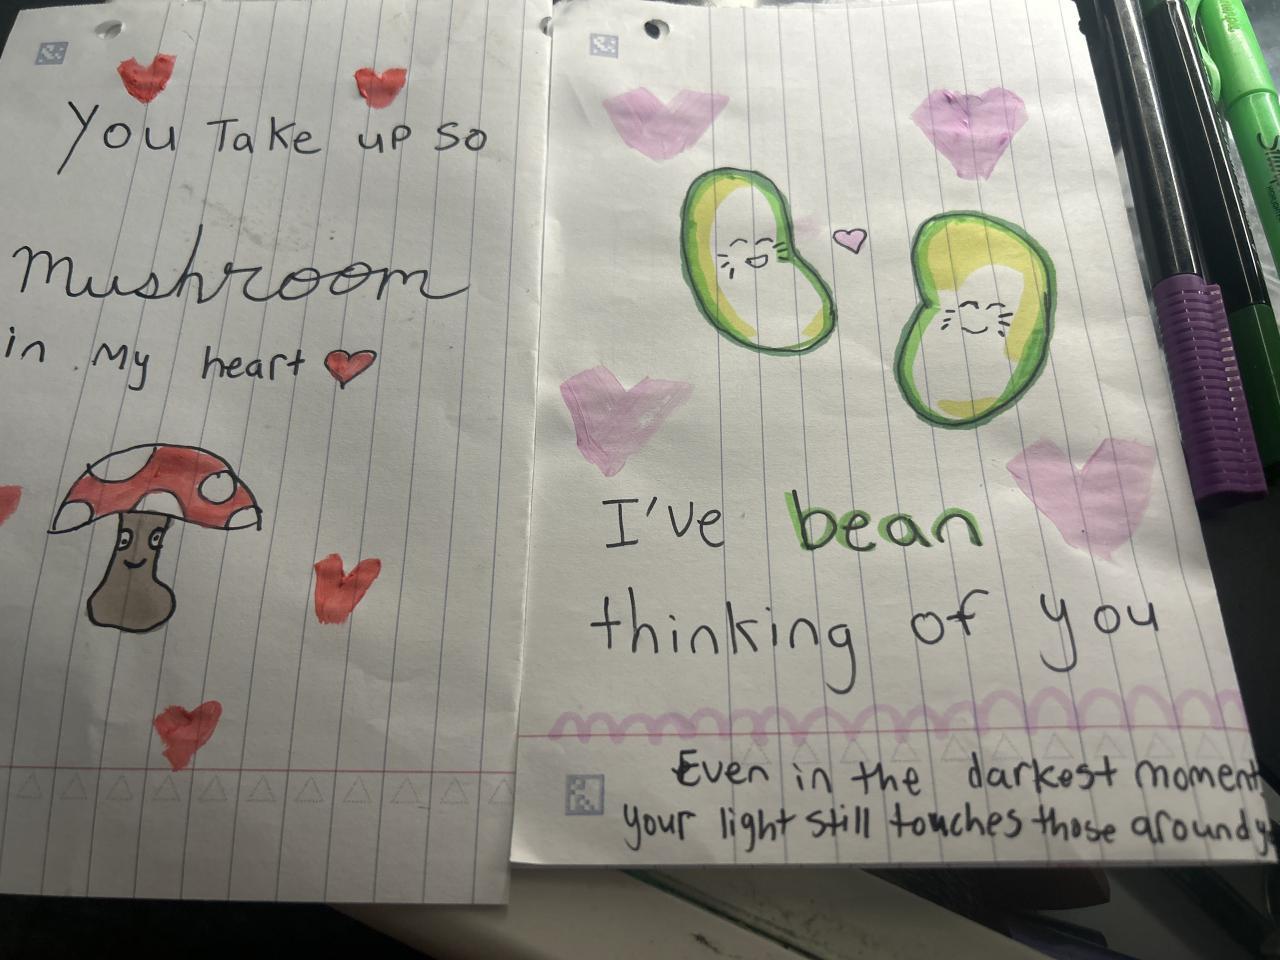 You Take up so
mushroom
in my heart
I've bean
thinking of you
Even in the darkest moment
your light still touches those around